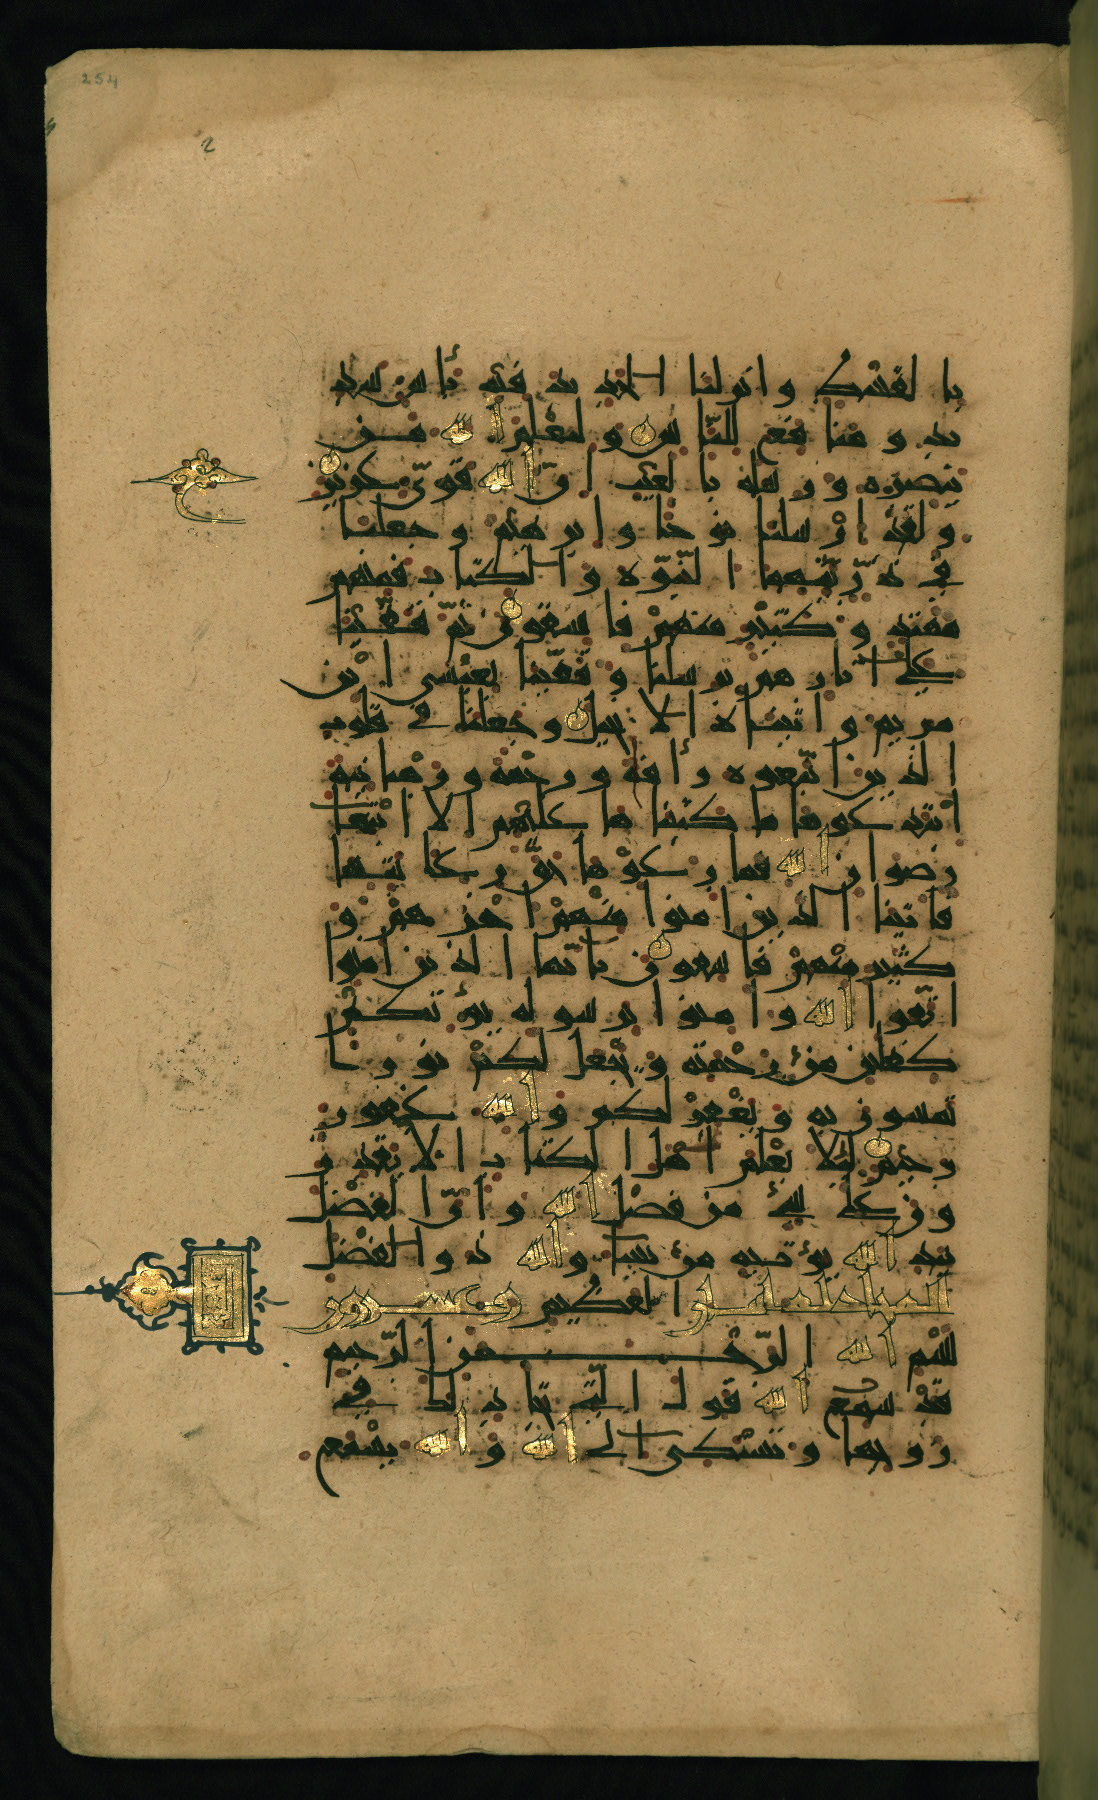 254
2
با لقسط وا نزلنا ا لحد يد فيه با س شد
يد و منا فع للنا س و ليعلم ا لله مـن
ينصره و ر سله با لغيب ا ن ا لله قوى عزيز
و لقد ا ر سلنا نو حا و ا بر هيم و جعلنا
في ذ ر يتهما ا لنبو ة و ا لكتا ب فمنهم
مهتد و كثير منهم فا سقو ن ثم قفينا
على ا ثا ر هم بر سلنا و قفينا بعيسى ا بن
مر يم و ا تيناه ا لا نجيل و جعلنا في قلوب
ا لذ ين ا تبعو ه ر أ فة و ر حمة و ر هبا نية
ا بتد عو ها ما كتبنا ها عليهم ا لا ا بتغا
ر ضو ا ن ا لله فما ر عو ها حق ر عا يتـها
فا تينا ا لذ ين ا منو ا منهم ا جر هم و
كثير منهم فا سقو ن يا يها ا لذ ين ا منو ا
ا تقو ا ا لله و ا منو ا بر سو له يؤ تكم
كفلين من ر حمته و يجعل لكم نو ر ا
تمشو ن به و يغفر لكم و ا لله غفو ر
ر حيم لئلا يعلم ا هل ا لكتا ب ا لا يقد ر
و ن على شئ من فضل ا لله و ا ن ا لفضل
بيد ا لله يؤ تيه من يشا و ا لله ذ و ا لفضل
ا لعظيم
بسم ا لله ا لر حـــمن ا لر حيم
قد سمع ا لله قو ل ا لتي تجا د لك في
ز و جها و تشتكى ا لى ا لله و ا لله يسمع